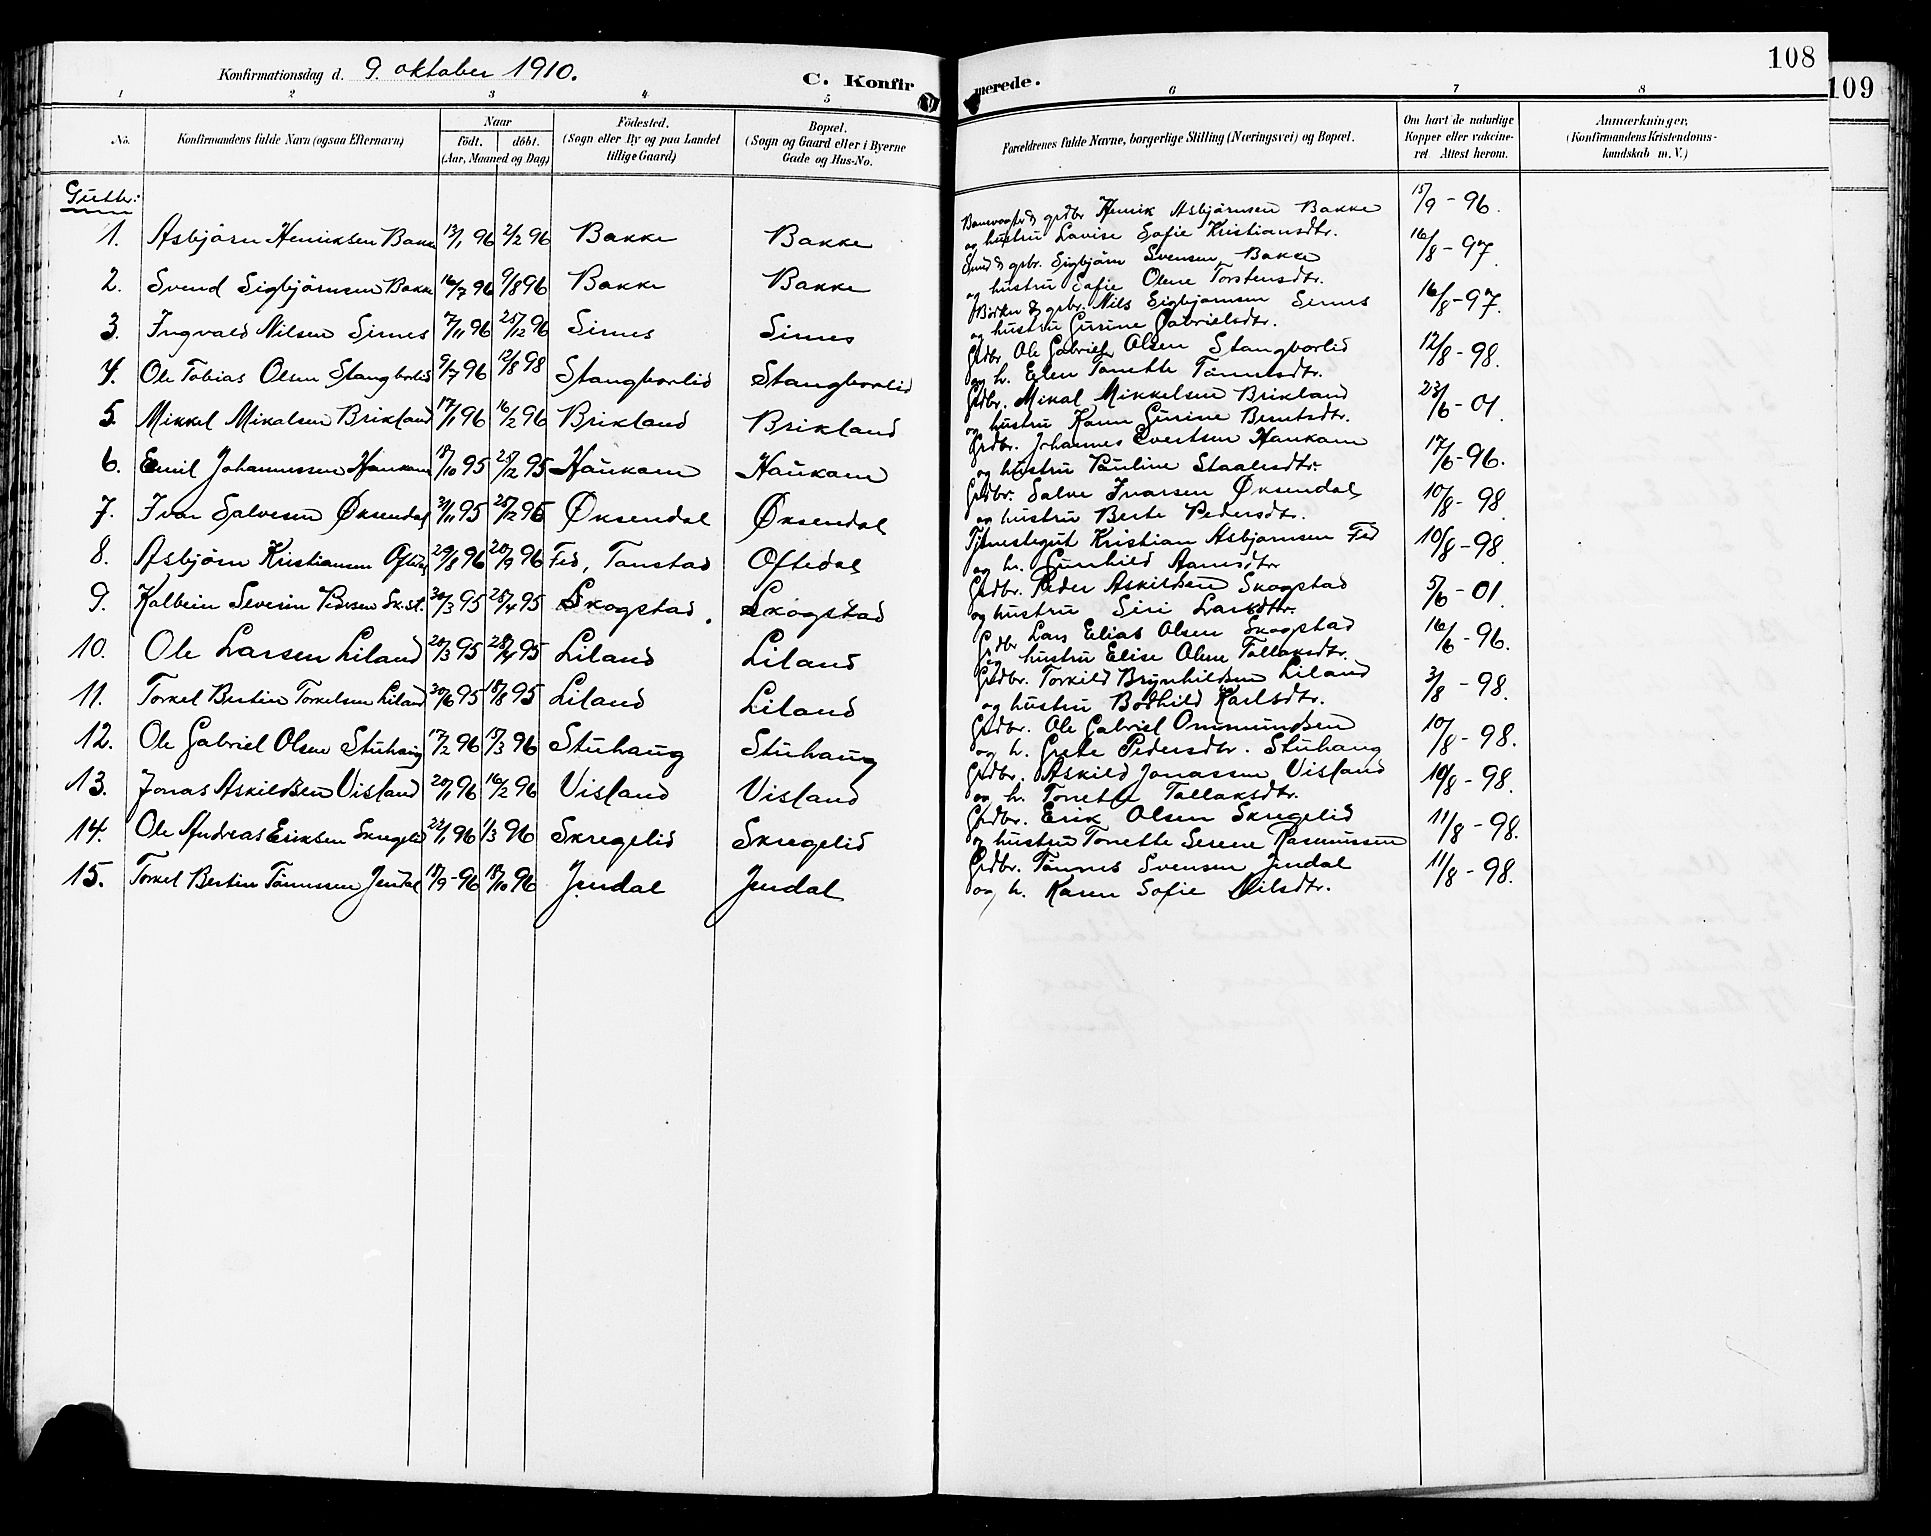 108
109
Konfirmationsdag d. 9. oktober 1910.
C. Konfirmerede.
1 2 3 4 5 6 7 8
No. Konfirmandens fulde Navn (ogsaa Efternavn) Naar født. døbt. (Aar, Maaned og Dag) Fødested. (Sogn eller By og paa Landet tillige Gaard) Bopæl. (Sogn og Gaard eller i Byerne Gade og Hus-No. Forældrenes fulde Navne, borgerlige Stilling (Næringsvei) og Bopæl. Om havt de naturlige Kopper eller vakcineret Attest herom. Anmerkninger, (Konfirmandens Kristendomskundskab m. V.)
Gutter:
1. Asbjørn Henriksen Bakke 13/1 96 2/2 96 Bakke Bakke grdbr Henrik Asbjørnsen Bakke 15/9 - 96.
og hustru Lovise Sofie Kristiansdtr.
2. Svend Sigbjørnsen Bakke 16/7 96 9/8 96 Bakke Bakke Smed & grbr. Sigbjørn Svensen Bakke 16/8 - 97
og hustru Sofie Oline Torstensdtr.
3. Ingvald Nilsen Sirnes 7/11 96 25/12 96 Sirnes Sirnes Bødker & grbr. Nils Sigbjørnsen Sirnes 16/8 - 97.
og hustru Gurine Gabrielsdtr.
4. Ole Tobias Olsen Stangborlid 9/7 96 12/8 98 Stangborlid Stangborlid Grdbr. Ole Gabriel Olsen Stangborlid 12/8 - 98.
og h. Elen Tonette Tønnesdtr.
5. Mikkel Mikalsen Brikland 17/1 96 16/2 96 Brikland Brikland Grdbr. Mikal Mikkelsen Brikland 23/6 - 01
og hustru Karen Gurine Berntsdtr.
6. Emil Johannessen Haukom 18/10 95 25/12 95 Haukom Haukom Grdbr. Johannes Evertsen Haukom 17/6 - 96.
og hustru Pauline Staalesdtr.
7. Ivar Salvesen Øksendal 21/11 95 25/12 95 Øksendal Øksendal Grdbr. Salve Ivarsen Øksendal 10/8 - 98
og hustru Berte Pedersdtr.
8. Asbjørn Kristiansen Oftedal 29/8 96 20/9 96 Fed, Tonstad Oftedal Tjenestegut Kristian Asbjørnsen Fed 10/8 - 98
og h. Gunhild Aamsdtr
9. Kolbein Severin Pedersen Skst. 30/3 95 28/4 95 Skogstad. Skogstad Grdbr. Peder Askildsen Skogstad 5/6 - 01
og hustru Siri Larsdtr.
10. Ole Larsen Liland 20/3 95 28/4 95 Liland Liland Grdbr Lars Elias Olsen Skogstad 16/6 - 96.
og hustru Elise Oline Tallaksdtr.
11. Torkel Bertin Torkelsen Liland 30/6 95 18/8 95 Liland Liland Grdbr. Torkild Brynhildsen Liland 3/8 - 98.
og hustru Bodhild Karlsdtr.
12. Ole Gabriel Olsen Stuhaug 17/2 96 15/3 96 Stuhaug Stuhaug Grdbr. Ole Gabriel Ommundsen 10/8 - 98.
og h. Grete Pedersdtr. Stuhaug
13. Jonas Askildsen Visland 20/1 96 16/2 96 Visland Visland Grdbr. Askild Jonassen Visland 10/8 - 98.
og h. Tonette Tallaksdtr.
14. Ole Andreas Eriksen Skregelid 22/1 96 1/3 96 Skregelid Skregelid Grdbr. Erik Olsen Skregelid 11/8 - 98.
og hustru Tonette Serene Rasmussen
15. Torkel Bertin Tønnessen Jendal 17/9 - 96 18/10 96 Jendal Jendal Grdbr. Tønnes Svensen Jendal 11/8 - 98.
og h. Karen Sofie Nilsdtr.